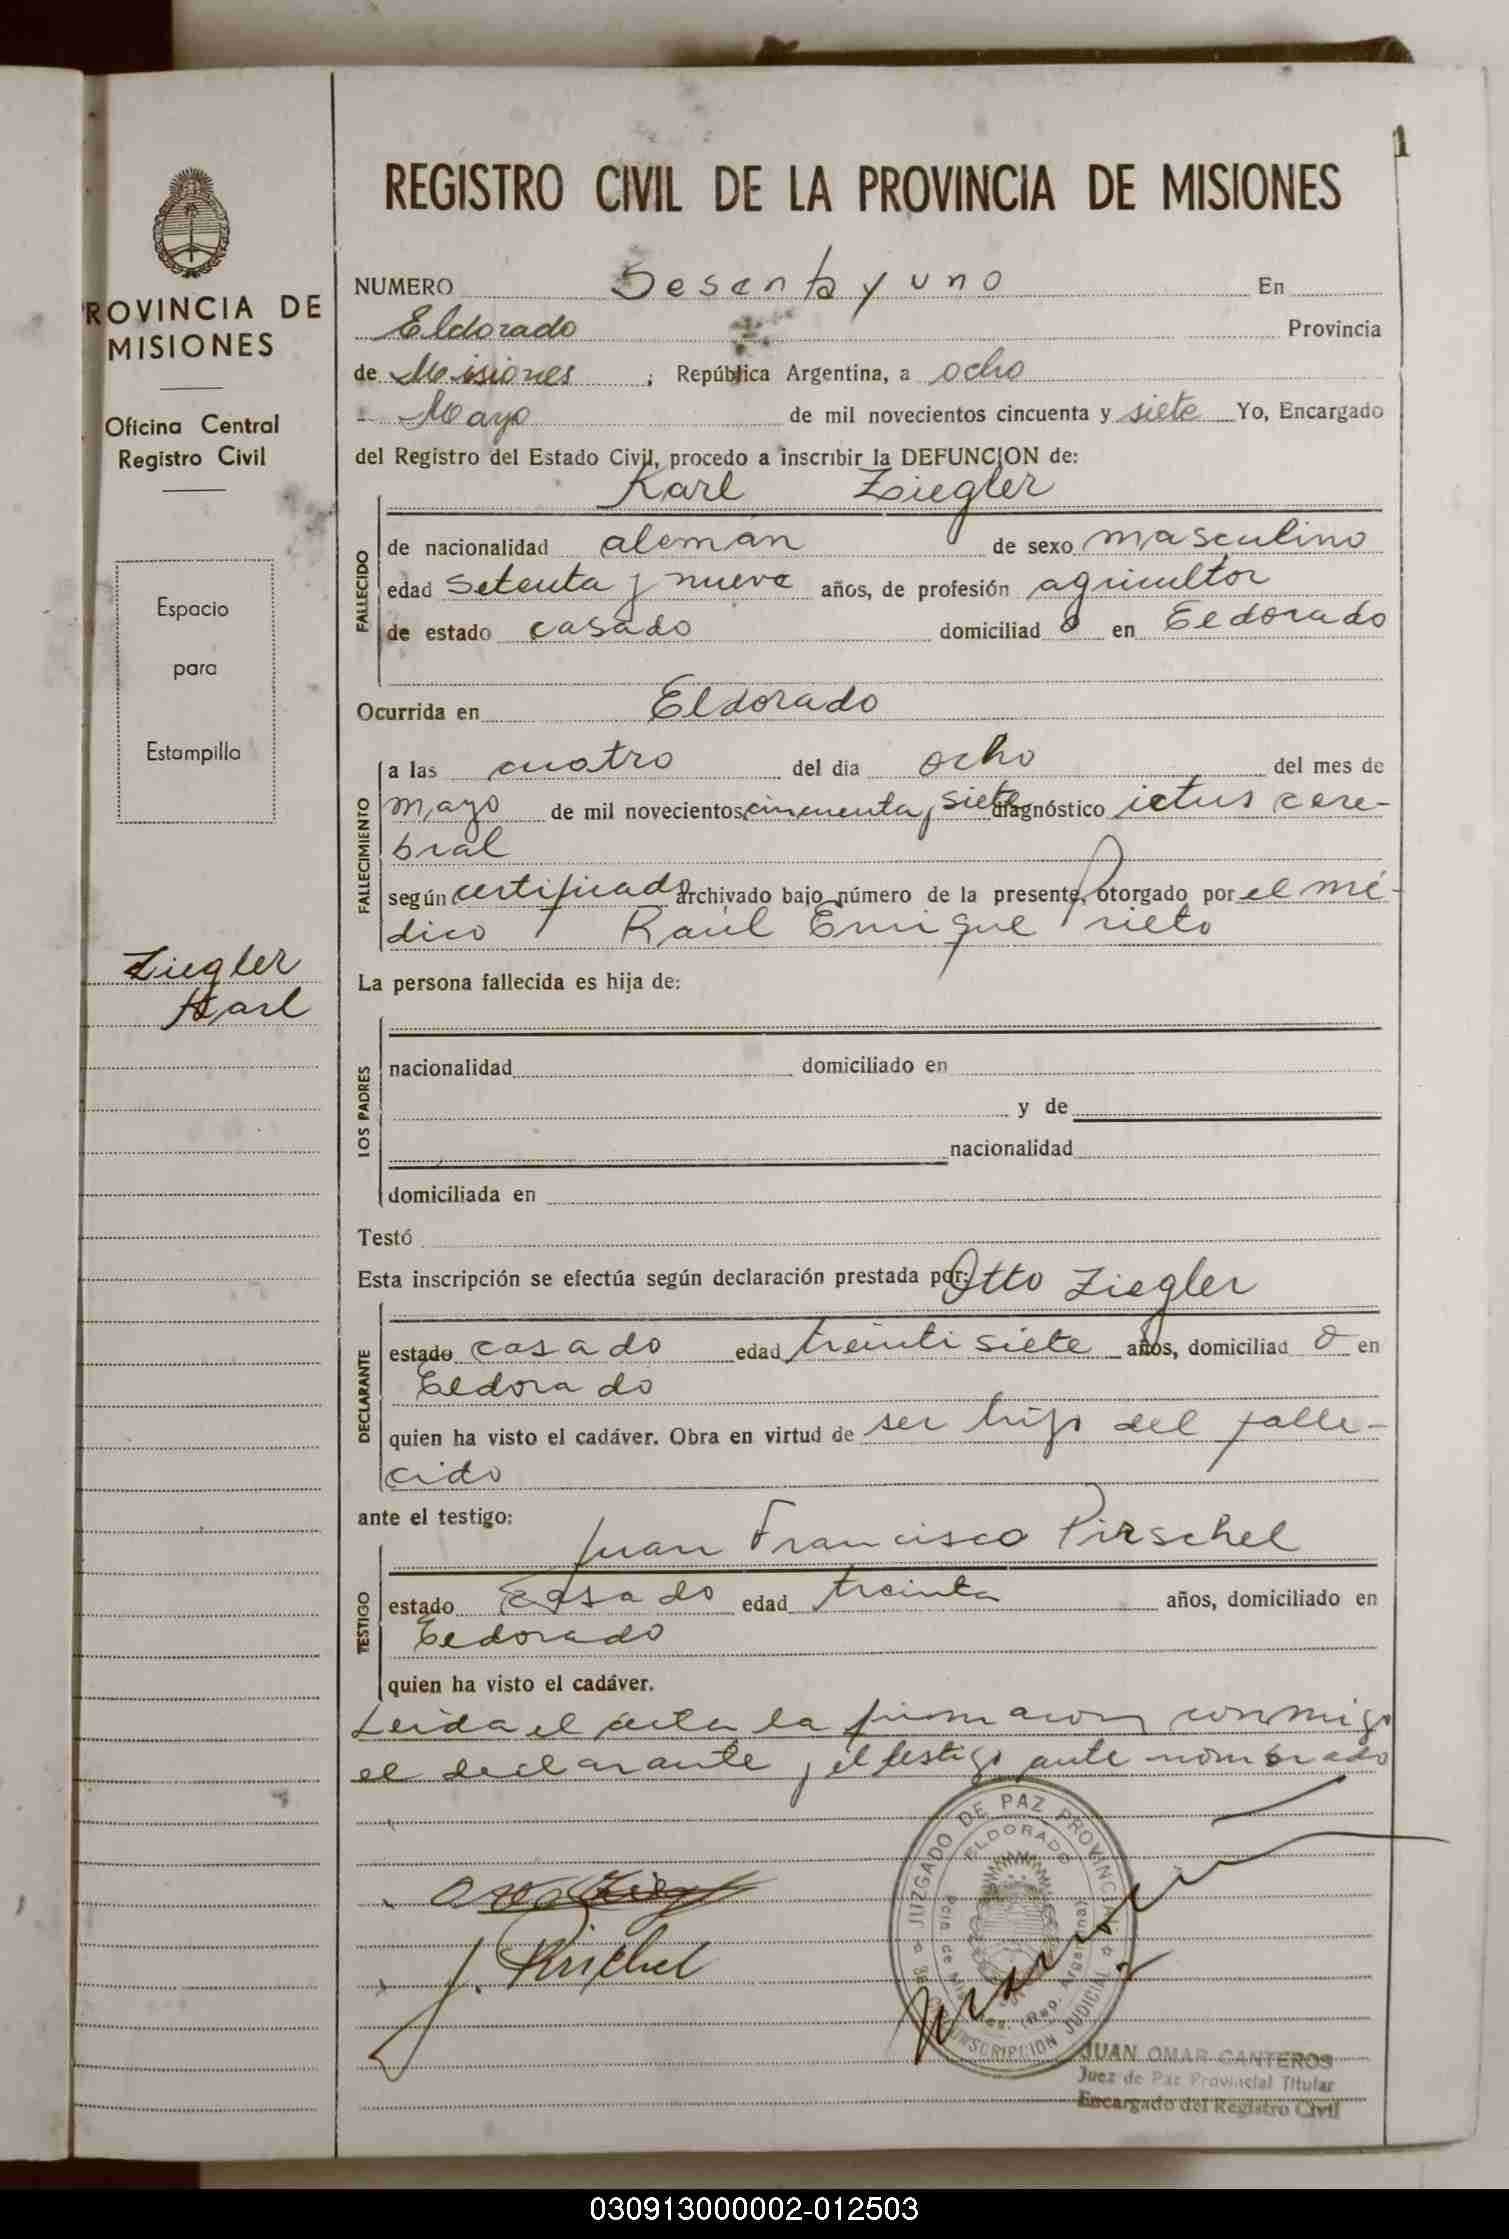 1
REGISTRO CIVIL DE LA PROVINCIA DE MISIONES
PROVINCIA DE
MISIONES
Oficina Central
Registro Civil
Espacio
para
Estampilla
Ziegler
Karl
NUMERO Sesenta y uno En
Eldorado Provincia
de Misiones ; República Argentina, a ocho
Mayo de mil novecientos cincuenta y siete Yo, Encargado
del Registro del Estado Civil, procedo a inscribir la DEFUNCION de:
Karl Ziegler
FALLECIDO
de nacionalidad alemán de sexo masculino
edad setenta y nueve años, de profesión agricultor
de estado casado domiciliad o en Eldorado
Ocurrida en Eldorado
FALLECIMIENTO
a las cuatro del dia ocho del mes de
mayo de mil novecientos cincuenta y siete diagnóstico ictus cere-
bral
según certificado archivado bajo número de la presente, otorgado por el mé-
dico Raúl Enrique Prieto
La persona fallecida es hija de:
LOS PADRES
nacionalidad domiciliado en
y de
nacionalidad
domiciliada en
Testó
Esta inscripción se efectúa según declaración prestada por: Otto Ziegler
DECLARANTE
estado casado edad treinti siete años, domiciliad o en
Eldorado
quien ha visto el cadáver. Obra en virtud de ser hijo del falle-
cido
ante el testigo:
Juan Francisco Pirschel
TESTIGO
estado casado edad treinta años, domiciliado en
Eldorado
quien ha visto el cadáver.
Leida el acta la firmaron conmigo
el declarante y el testigo ante nombrado
JUZGADO DE PAZ PROVINCIAL
ELDORADO
(Rep. Argentina)
JUDICIAL
J. Pirschel
JUAN OMAR CANTEROS
Juez de Paz Provincial Titular
Encargado del Registro Civil
030913000002-012503